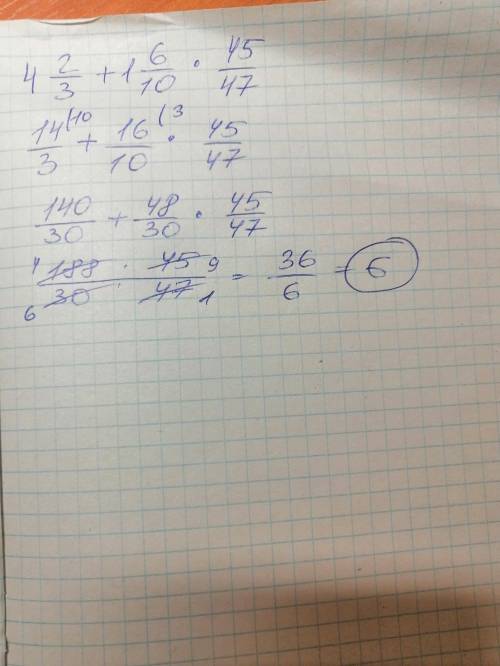 4 2/3 + 1 6/10 · 45/47
14/3 (10 + 16/10 (3 · 45/47
140/30 + 48/30 · 45/47
4 188 · 45 9 / 6 30 · 47 1 = 36/6 = 6